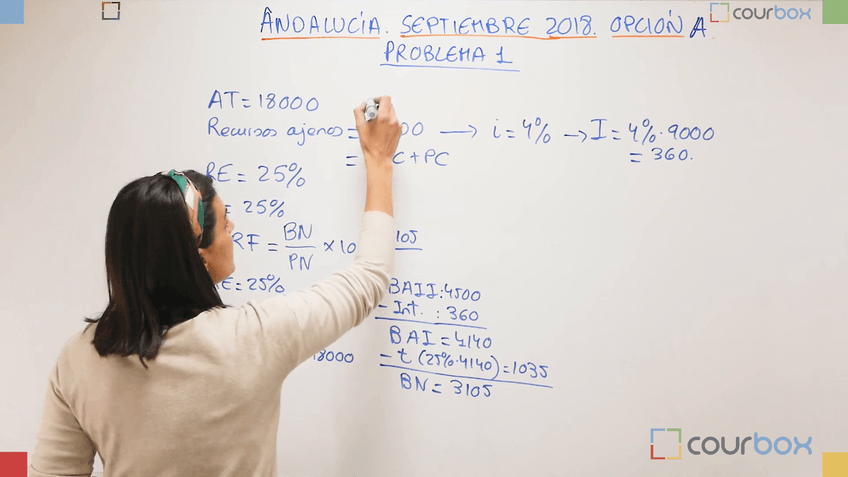 ANDALUCÍA. SEPTIEMBRE 2018. OPCIÓN A
PROBLEMA 1
courbox
AT = 18000
Recursos ajenos = 00 → i = 4% → I = 4%·9000
= C + PC = 360.
RE = 25%
= 25%
RF = BN/PN × 10 105
E = 25%
BAII: 4500
- Int. : 360
BAI = 4140
18000 - t (25%·4140) = 1035
BN = 3105
courbox